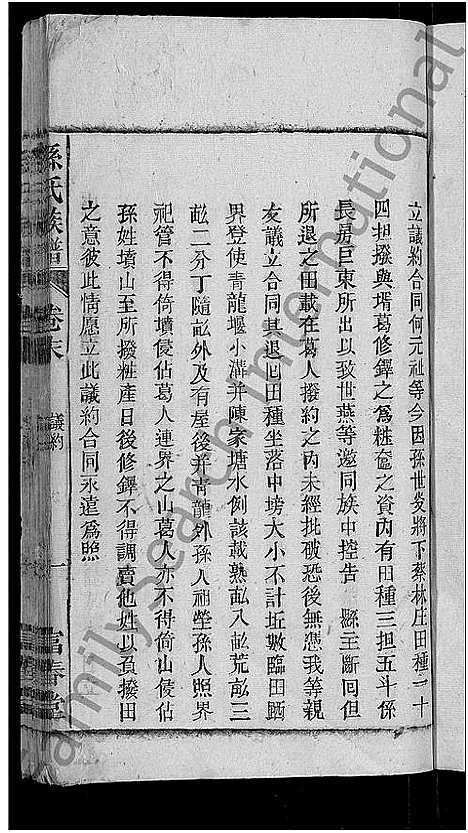 立議約合同何元祉等今因孫世炎將下蔡林庄田種二十
四担撥與壻葛修鐸之爲粧奩之資內有田種三担五斗係
長房巨東所出以致世燕等邀同族中控告　縣主斷囘但
所退之田載在葛人撥約之內未經批破恐後無憑我等親
友議立合同其退囘田種坐落中塝大小不計坵數臨田踊
界登使青龍堰小溝并陳家塘水例該載熟畝八畝荒畝三
畝二分丁隨畝外及有屋後并青龍外孫人祖塋孫人照界
祀管不得倚墳侵佔葛人連界之山葛人亦不得倚山侵佔
孫姓墳山至所撥粧產日後修鐸不得調賣他姓以負撥田
之意彼此情愿立此議約合同永遠爲照
孫氏族譜 卷末 議約 一 富春堂
FamilySearch International